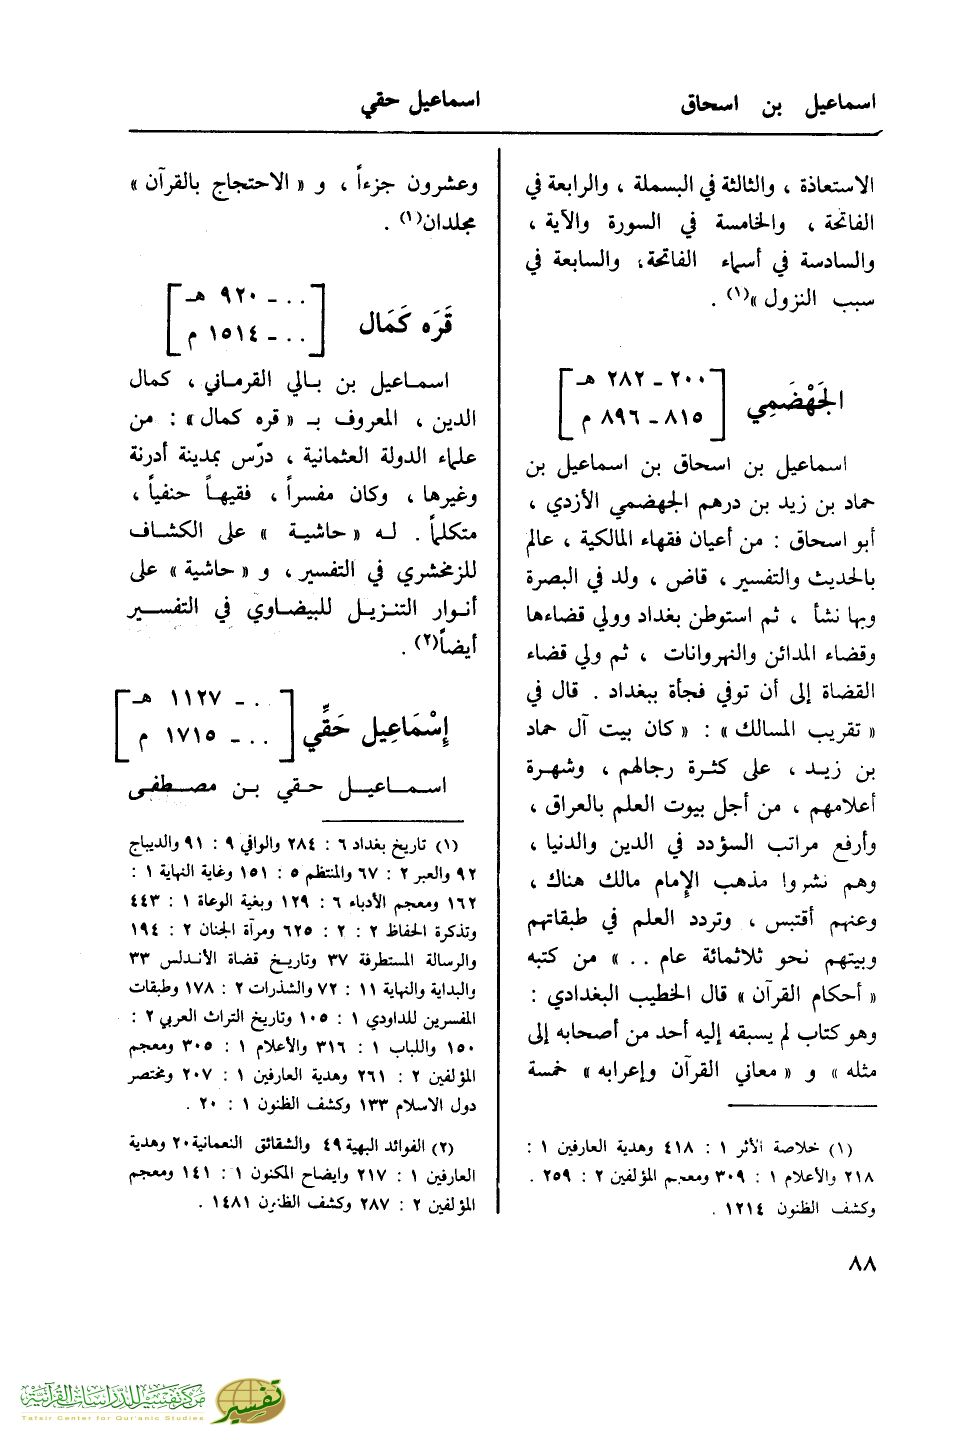 اسماعيل بن اسحاق
اسماعيل حقي
الاستعاذة ، والثالثة في البسملة ، والرابعة في
الفاتحة ، والخامسة في السورة والآية ،
والسادسة في أسماء الفاتحة، والسابعة في
سبب النزول »(١) .
الجَهْضَمِي
[ ٢٠٠ ـ ٢٨٢ هـ
٨١٥ ـ ٨٩٦ م ]
اسماعيل بن اسحاق بن اسماعيل بن
حماد بن زيد بن درهم الجهضمي الأزدي ،
أبو اسحاق : من أعيان فقهاء المالكية ، عالم
بالحديث والتفسير ، قاض ، ولد في البصرة
وبها نشأ ، ثم استوطن بغداد وولي قضاءها
وقضاء المدائن والنهروانات ، ثم ولي قضاء
القضاة إلى أن توفي فجأة ببغداد . قال في
« تقريب المسالك » : « كان بيت آل حماد
بن زيد ، على كثرة رجالهم ، وشهرة
أعلامهم ، من أجل بيوت العلم بالعراق ،
وأرفع مراتب السؤدد في الدين والدنيا ،
وهم نشروا مذهب الإمام مالك هناك ،
وعنهم أقتبس ، وتردد العلم في طبقاتهم
وبيتهم نحو ثلاثمائة عام .. » من كتبه
« أحكام القرآن » قال الخطيب البغدادي :
وهو كتاب لم يسبقه إليه أحد من أصحابه إلى
مثله » و « معاني القرآن وإعرابه » خمسة
(١) خلاصة الأثر ١ : ٤١٨ وهدية العارفين ١ :
٢١٨ والأعلام ١ : ٣٠٩ ومعجم المؤلفين ٢ : ٢٥٩ .
وكشف الظنون ١٢١٤ .
وعشرون جزءاً ، و « الاحتجاج بالقرآن »
مجلدان(١) .
قَرَه كَمَال
[ .. ـ ٩٢٠ هـ
.. ـ ١٥١٤ م ]
اسماعيل بن بالي القرماني ، كمال
الدين ، المعروف بـ « قره كمال » : من
علماء الدولة العثمانية ، درّس بمدينة أدرنة
وغيرها ، وكان مفسراً ، فقيهاً حنفياً ،
متكلماً . له « حاشية » على الكشاف
للزمخشري في التفسير ، و « حاشية » على
أنوار التنزيل للبيضاوي في التفسير
أيضاً(٢) .
إسْمَاعِيل حَقِّي
[ .. ـ ١١٢٧ هـ
.. ـ ١٧١٥ م ]
اسماعيل حقي بن مصطفى
(١) تاريخ بغداد ٦ : ٢٨٤ والوافي ٩ : ٩١ والديباج
٩٢ والعبر ٢ : ٦٧ والمنتظم ٥ : ١٥١ وغاية النهاية ١ :
١٦٢ ومعجم الأدباء ٦ : ١٢٩ وبغية الوعاة ١ : ٤٤٣
وتذكرة الحفاظ ٢ : ٢ : ٦٢٥ ومرآة الجنان ٢ : ١٩٤
والرسالة المستطرفة ٣٧ وتاريخ قضاة الأندلس ٣٣
والبداية والنهاية ١١ : ٧٢ والشذرات ٢ : ١٧٨ وطبقات
المفسرين للداودي ١ : ١٠٥ وتاريخ التراث العربي ٢ :
١٥٠ واللباب ١ : ٣١٦ والأعلام ١ : ٣٠٥ ومعجم
المؤلفين ٢ : ٢٦١ وهدية العارفين ١ : ٢٠٧ ومختصر
دول الاسلام ١٣٣ وكشف الظنون ١ : ٢٠ .
(٢) الفوائد البهية ٤٩ والشقائق النعمانية ٢٠ وهدية
العارفين ١ : ٢١٧ وايضاح المكنون ١ : ١٤١ ومعجم
المؤلفين ٢ : ٢٨٧ وكشف الظنون ١٤٨١ .
٨٨
مركز تفسير للدراسات القرآنية
Tafsir Center for Qur'anic Studies
تفسير